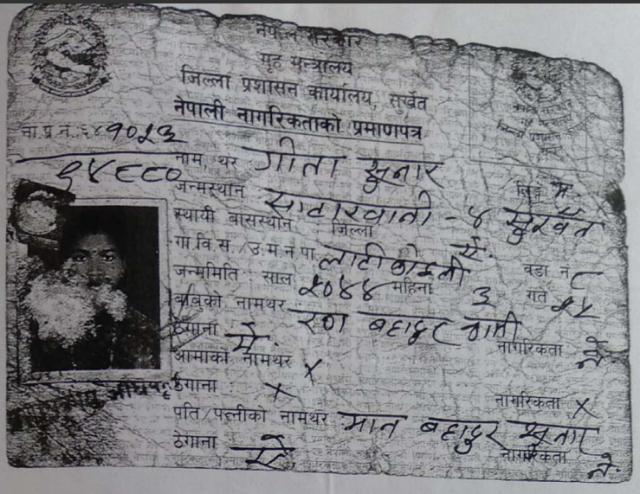 नेपाल सरकार
गृह मन्त्रालय
जिल्ला प्रशासन कार्यालय, सुर्खेत
नेपाली नागरिकताको प्रमाणपत्र
ना.प्र.नं. ६४१०२३
नाम, थर गीता सुनार
जन्मस्थान साटाखानी - ४ सुर्खेत
स्थायी बासस्थान जिल्ला
गा.वि.स./उ.म.न.पा. लाटीकोइली वडा नं ८
जन्ममिति साल २०४४ महिना ३ गते
बाबुको नामथर रण बहादुर
ठेगाना ऐ. नागरिकता
आमाको नामथर X
ठेगाना X नागरिकता X
पति/पत्नीको नामथर मान बहादुर सुनार
ठेगाना ऐ. नागरिकता ने